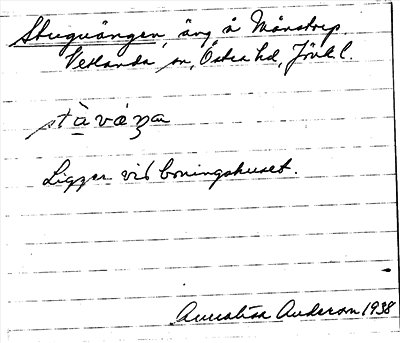 Stuguängen, äng å Månstorp
Vetlanda sn, Östra hd, Jönk. l.
Ligger vid boningshuset.
Annalisa Anderson 1938